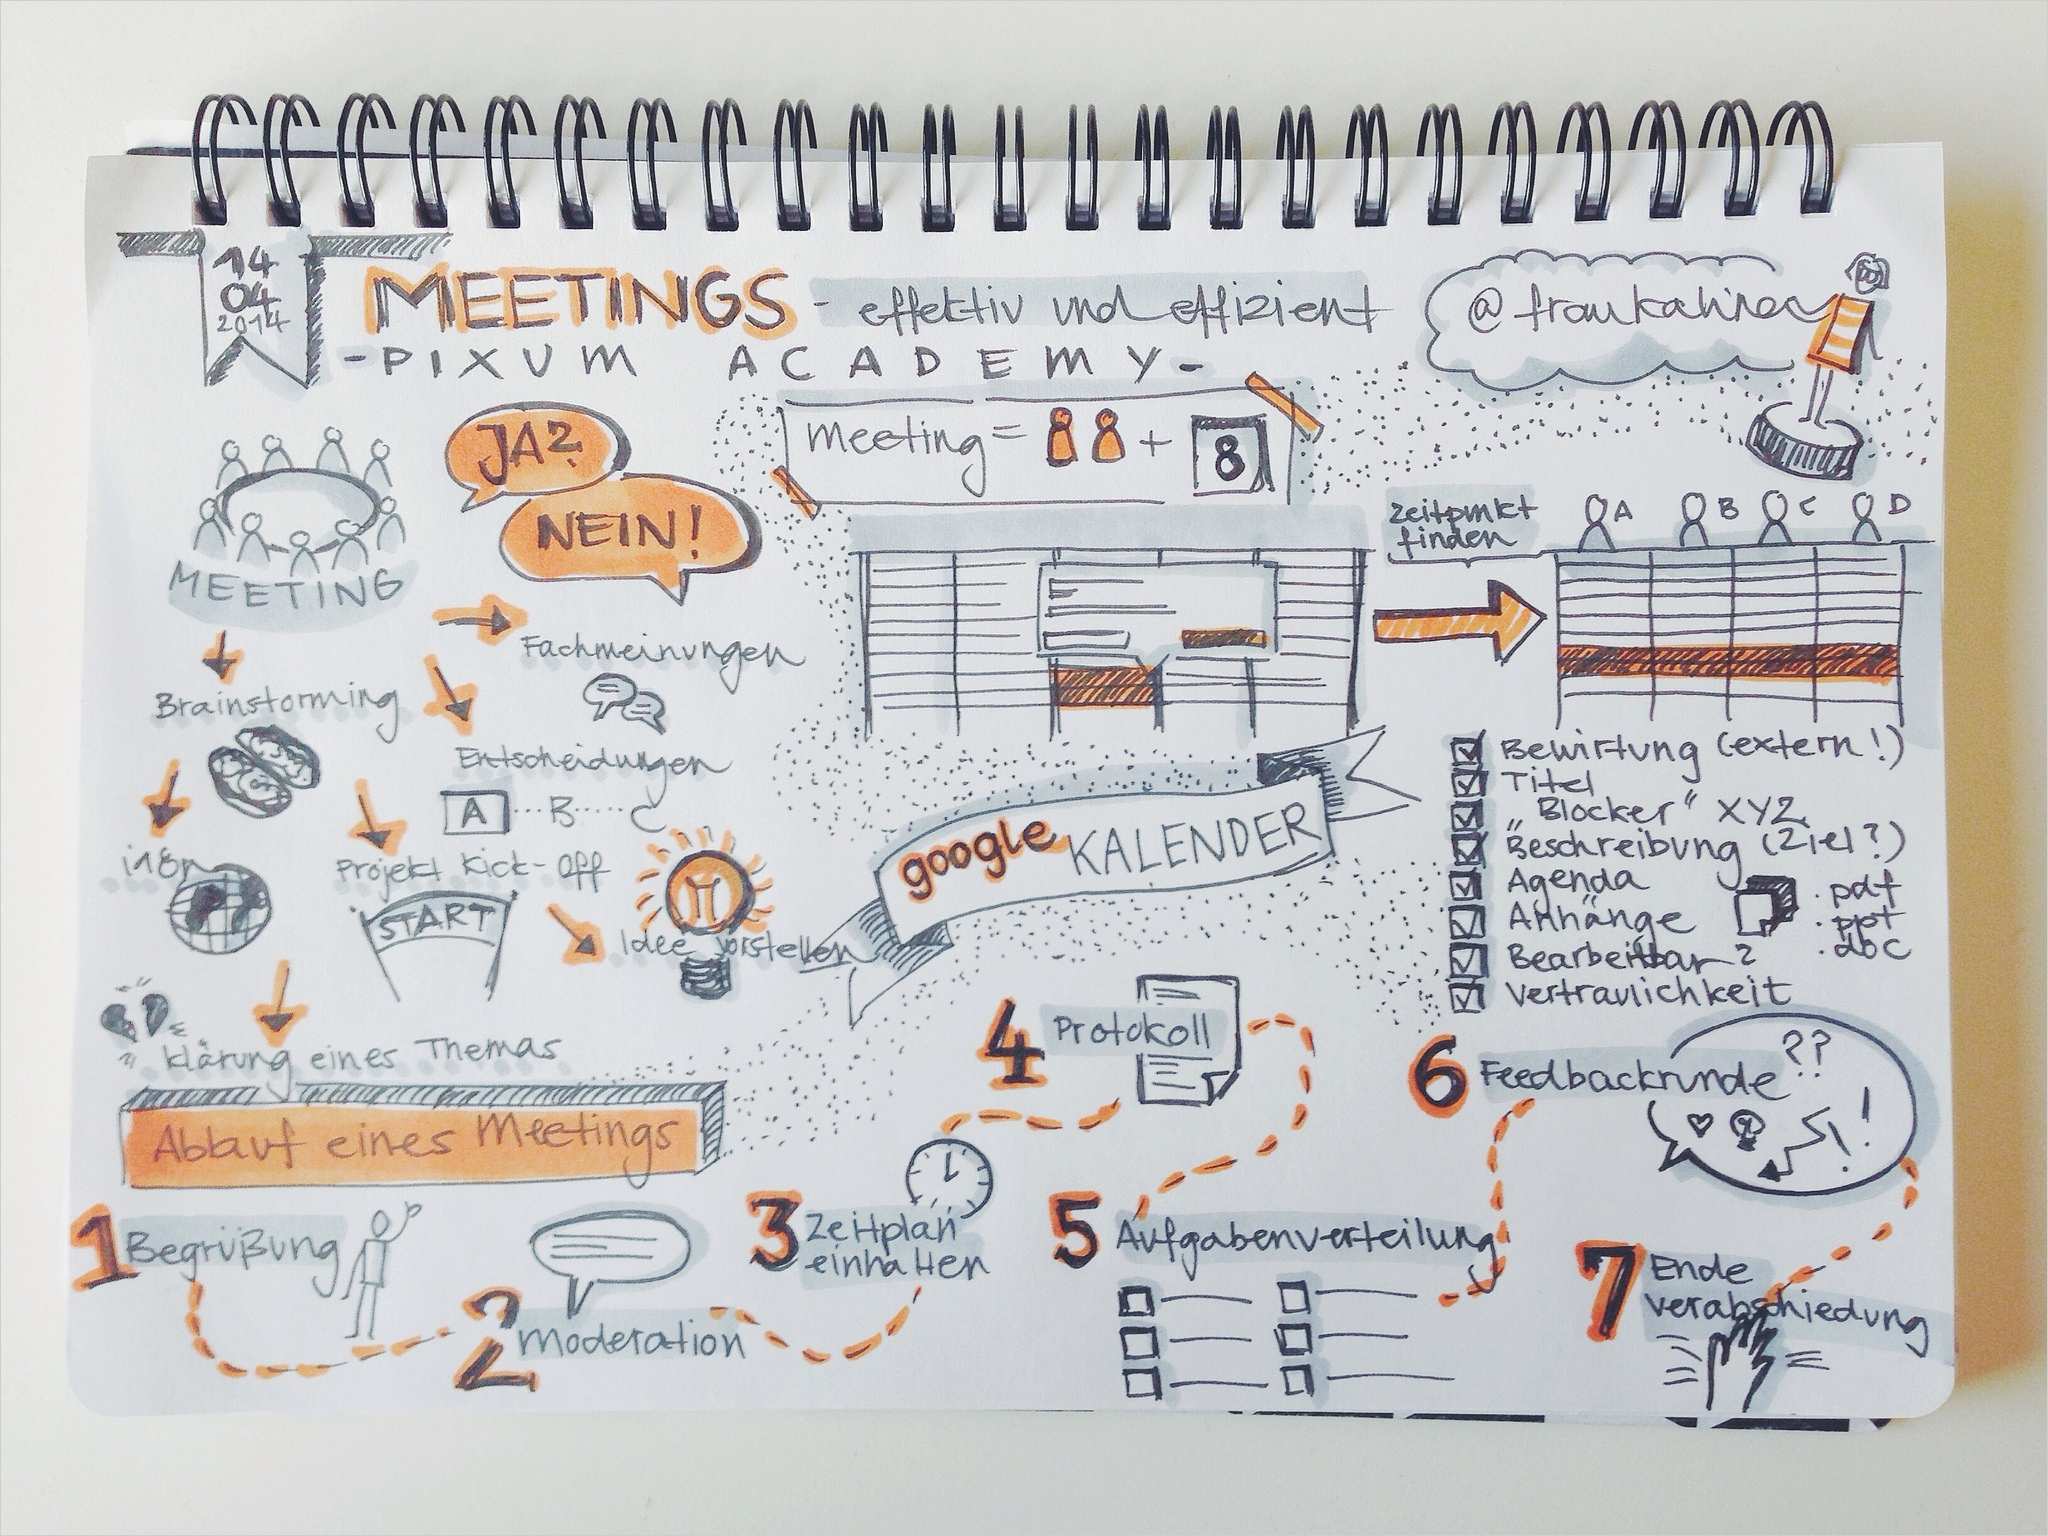 14
04
2014
MEETINGS - effektiv und effizient
-PIXUM ACADEMY-
JA?
NEIN!
meeting = +
8
MEETING
Fachmeinungen
Brainstorming
Entscheidungen
A B C
i18n
Projekt Kick-Off
START
Idee vorstellen
Klärung eines Themas
Zeitpunkt
finden
A B C D
google KALENDER
Bewirtung (extern!)
Titel
"Blocker" XYZ
Beschreibung (Ziel?)
Agenda
Anhänge
.pdf
.ppt
.doc
Bearbeitbar?
Vertraulichkeit
Ablauf eines Meetings
1 Begrüßung
2 Moderation
3 Zeitplan
einhalten
4 Protokoll
5 Aufgabenverteilung
6 Feedbackrunde
?? !
7 Ende
verabschiedung